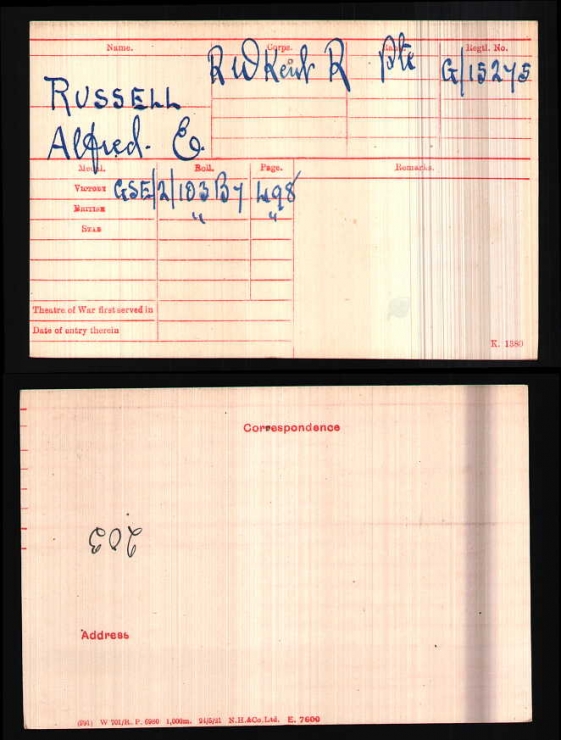 Name. Corps. Rank. Regtl. No.
R W Kent R Pte G/15275
RUSSELL
Alfred. E.
Medal. Roll. Page. Remarks.
Victory GSE/2/103B7 498
British " "
Star
Theatre of War first served in
Date of entry therein
K. 1380
Correspondence
203
Address
(991) W 701/R. P. 6980 1,000m. 24/5/21 N.H.&Co.Ltd. E. 7600